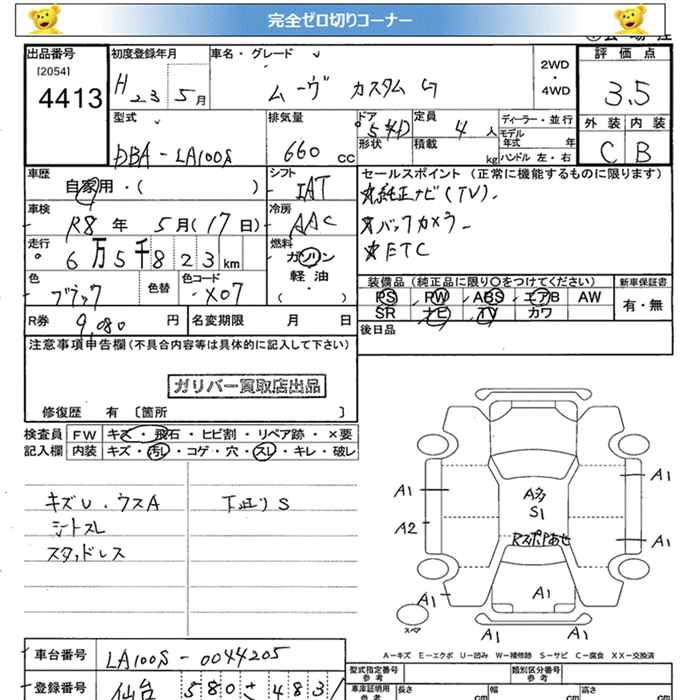 完全ゼロ切りコーナー
出品番号 初度登録年月 車名・グレード 評価点
[2054]
4413
H23 5月 ムーヴ カスタム G
2WD
・
4WD
3.5
型式 排気量 ドア 定員 ディーラー・並行 外装 内装
DBA-LA100S 660 CC 5 4人
モデル年式 年
形状 積載 kg ハンドル 左・右
C B
車歴 シフト セールスポイント(正常に機能するものに限ります)
自家用・( ) IAT ☆純正ナビ(TV)
車検 冷房 ☆バックカメラ
R8年 5月(17日) AAC ☆ETC
走行 燃料
6万5千823km ガソリン
軽油
( ・ )
色 色替 色コード 装備品(純正品に限り○をつけてください) 新車保証書
ブラック X07 PS PW ABS エアB AW 有・無
SR ナビ TV カワ
R券 9,080円 名変期限 月 日 後日品
注意事項申告欄(不具合内容等は具体的に記入して下さい)
ガリバー買取店出品
修復歴 有 〔箇所 〕
検査員 FW キズ・飛石・ヒビ割・リペア跡・×要
記入欄 内装 キズ・汚レ・コゲ・穴・スレ・キレ・破レ
キズU・ウスA 下廻りS
シートスレ
スタッドレス
A1 A1
A多
S1
A2 A1
Rスポイトあせ
A1 A1 A1
スペア
A1 A1
A―キズ E―エクボ U―凹み W―補修跡 S―サビ C―腐食 XX―交換済
車台番号 LA100S-0044205 型式指定番号 参考 類別区分番号 参考
登録番号 仙台 580 さ 4831 車庫証明用 参考 長さ cm 幅 cm 高さ cm